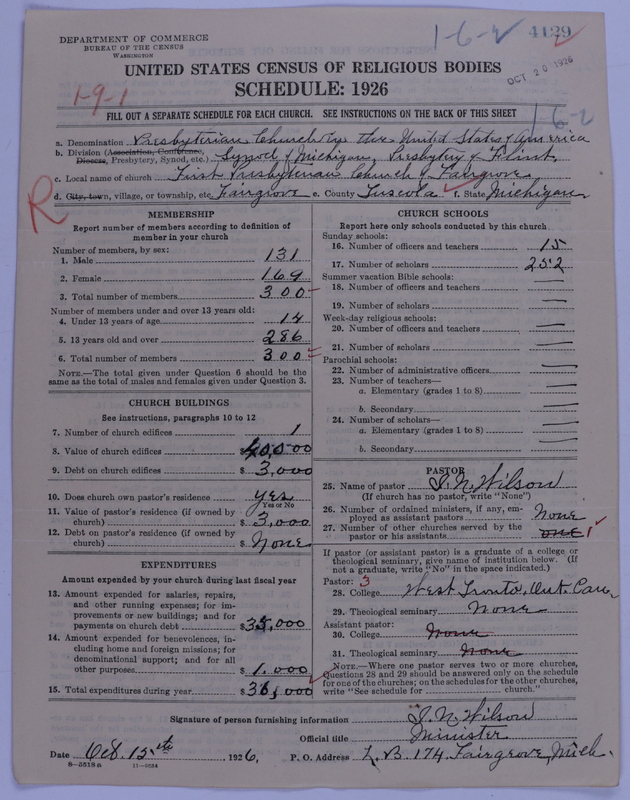 DEPARTMENT OF COMMERCE
BUREAU OF THE CENSUS
WASHINGTON
1-6-2
4129
OCT 20 1926
UNITED STATES CENSUS OF RELIGIOUS BODIES
SCHEDULE: 1926
1-9-1
FILL OUT A SEPARATE SCHEDULE FOR EACH CHURCH. SEE INSTRUCTIONS ON THE BACK OF THIS SHEET
1 6-2
a. Denomination Presbyterian Church in the United States of America
b. Division (Association, Conference, Diocese, Presbytery, Synod, etc.) Synod of Michigan, Presbytery of Flint
c. Local name of church First Presbyterian Church of Fairgrove
d. City, town, village, or township, etc. Fairgrove e. County Tuscola f. State Michigan
R
MEMBERSHIP
Report number of members according to definition of
member in your church
Number of members, by sex:
1. Male 131
2. Female 169
3. Total number of members 300
Number of members under and over 13 years old:
4. Under 13 years of age 14
5. 13 years old and over 286
6. Total number of members 300
NOTE.—The total given under Question 6 should be the
same as the total of males and females given under Question 3.
CHURCH BUILDINGS
See instructions, paragraphs 10 to 12
7. Number of church edifices 1
8. Value of church edifices $
9. Debt on church edifices $ 3,000
10. Does church own pastor's residence yes
Yes or No
11. Value of pastor's residence (if owned by
church) $ 3,000
12. Debt on pastor's residence (if owned by
church) $ None
EXPENDITURES
Amount expended by your church during last fiscal year
13. Amount expended for salaries, repairs,
and other running expenses; for im-
provements or new buildings; and for
payments on church debt $ 35,000
14. Amount expended for benevolences, in-
cluding home and foreign missions; for
denominational support; and for all
other purposes $ 1,000
15. Total expenditures during year $ 36,000
CHURCH SCHOOLS
Report here only schools conducted by this church
Sunday schools:
16. Number of officers and teachers 15
17. Number of scholars 252
Summer vacation Bible schools:
18. Number of officers and teachers —
19. Number of scholars —
Week-day religious schools:
20. Number of officers and teachers —
21. Number of scholars —
Parochial schools:
22. Number of administrative officers —
23. Number of teachers—
a. Elementary (grades 1 to 8) —
b. Secondary —
24. Number of scholars—
a. Elementary (grades 1 to 8) —
b. Secondary —
PASTOR
25. Name of pastor I. N. Wilson
(If church has no pastor, write "None")
26. Number of ordained ministers, if any, em-
ployed as assistant pastors None
27. Number of other churches served by the
pastor or his assistants one 1
If pastor (or assistant pastor) is a graduate of a college or
theological seminary, give name of institution below. (If
not a graduate, write "No" in the space indicated.)
Pastor: 3
28. College West Tronto, Ont. Can.
29. Theological seminary None
Assistant pastor:
30. College None
31. Theological seminary None
NOTE.—Where one pastor serves two or more churches,
Questions 28 and 29 should be answered only on the schedule
for one of the churches; on the schedules for the other churches,
write "See schedule for church."
Signature of person furnishing information I. N. Wilson
Official title Minister
Date Oct. 15th 1926, P. O. Address L. B. 174, Fairgrove, Mich.
8-5518a 11-9584